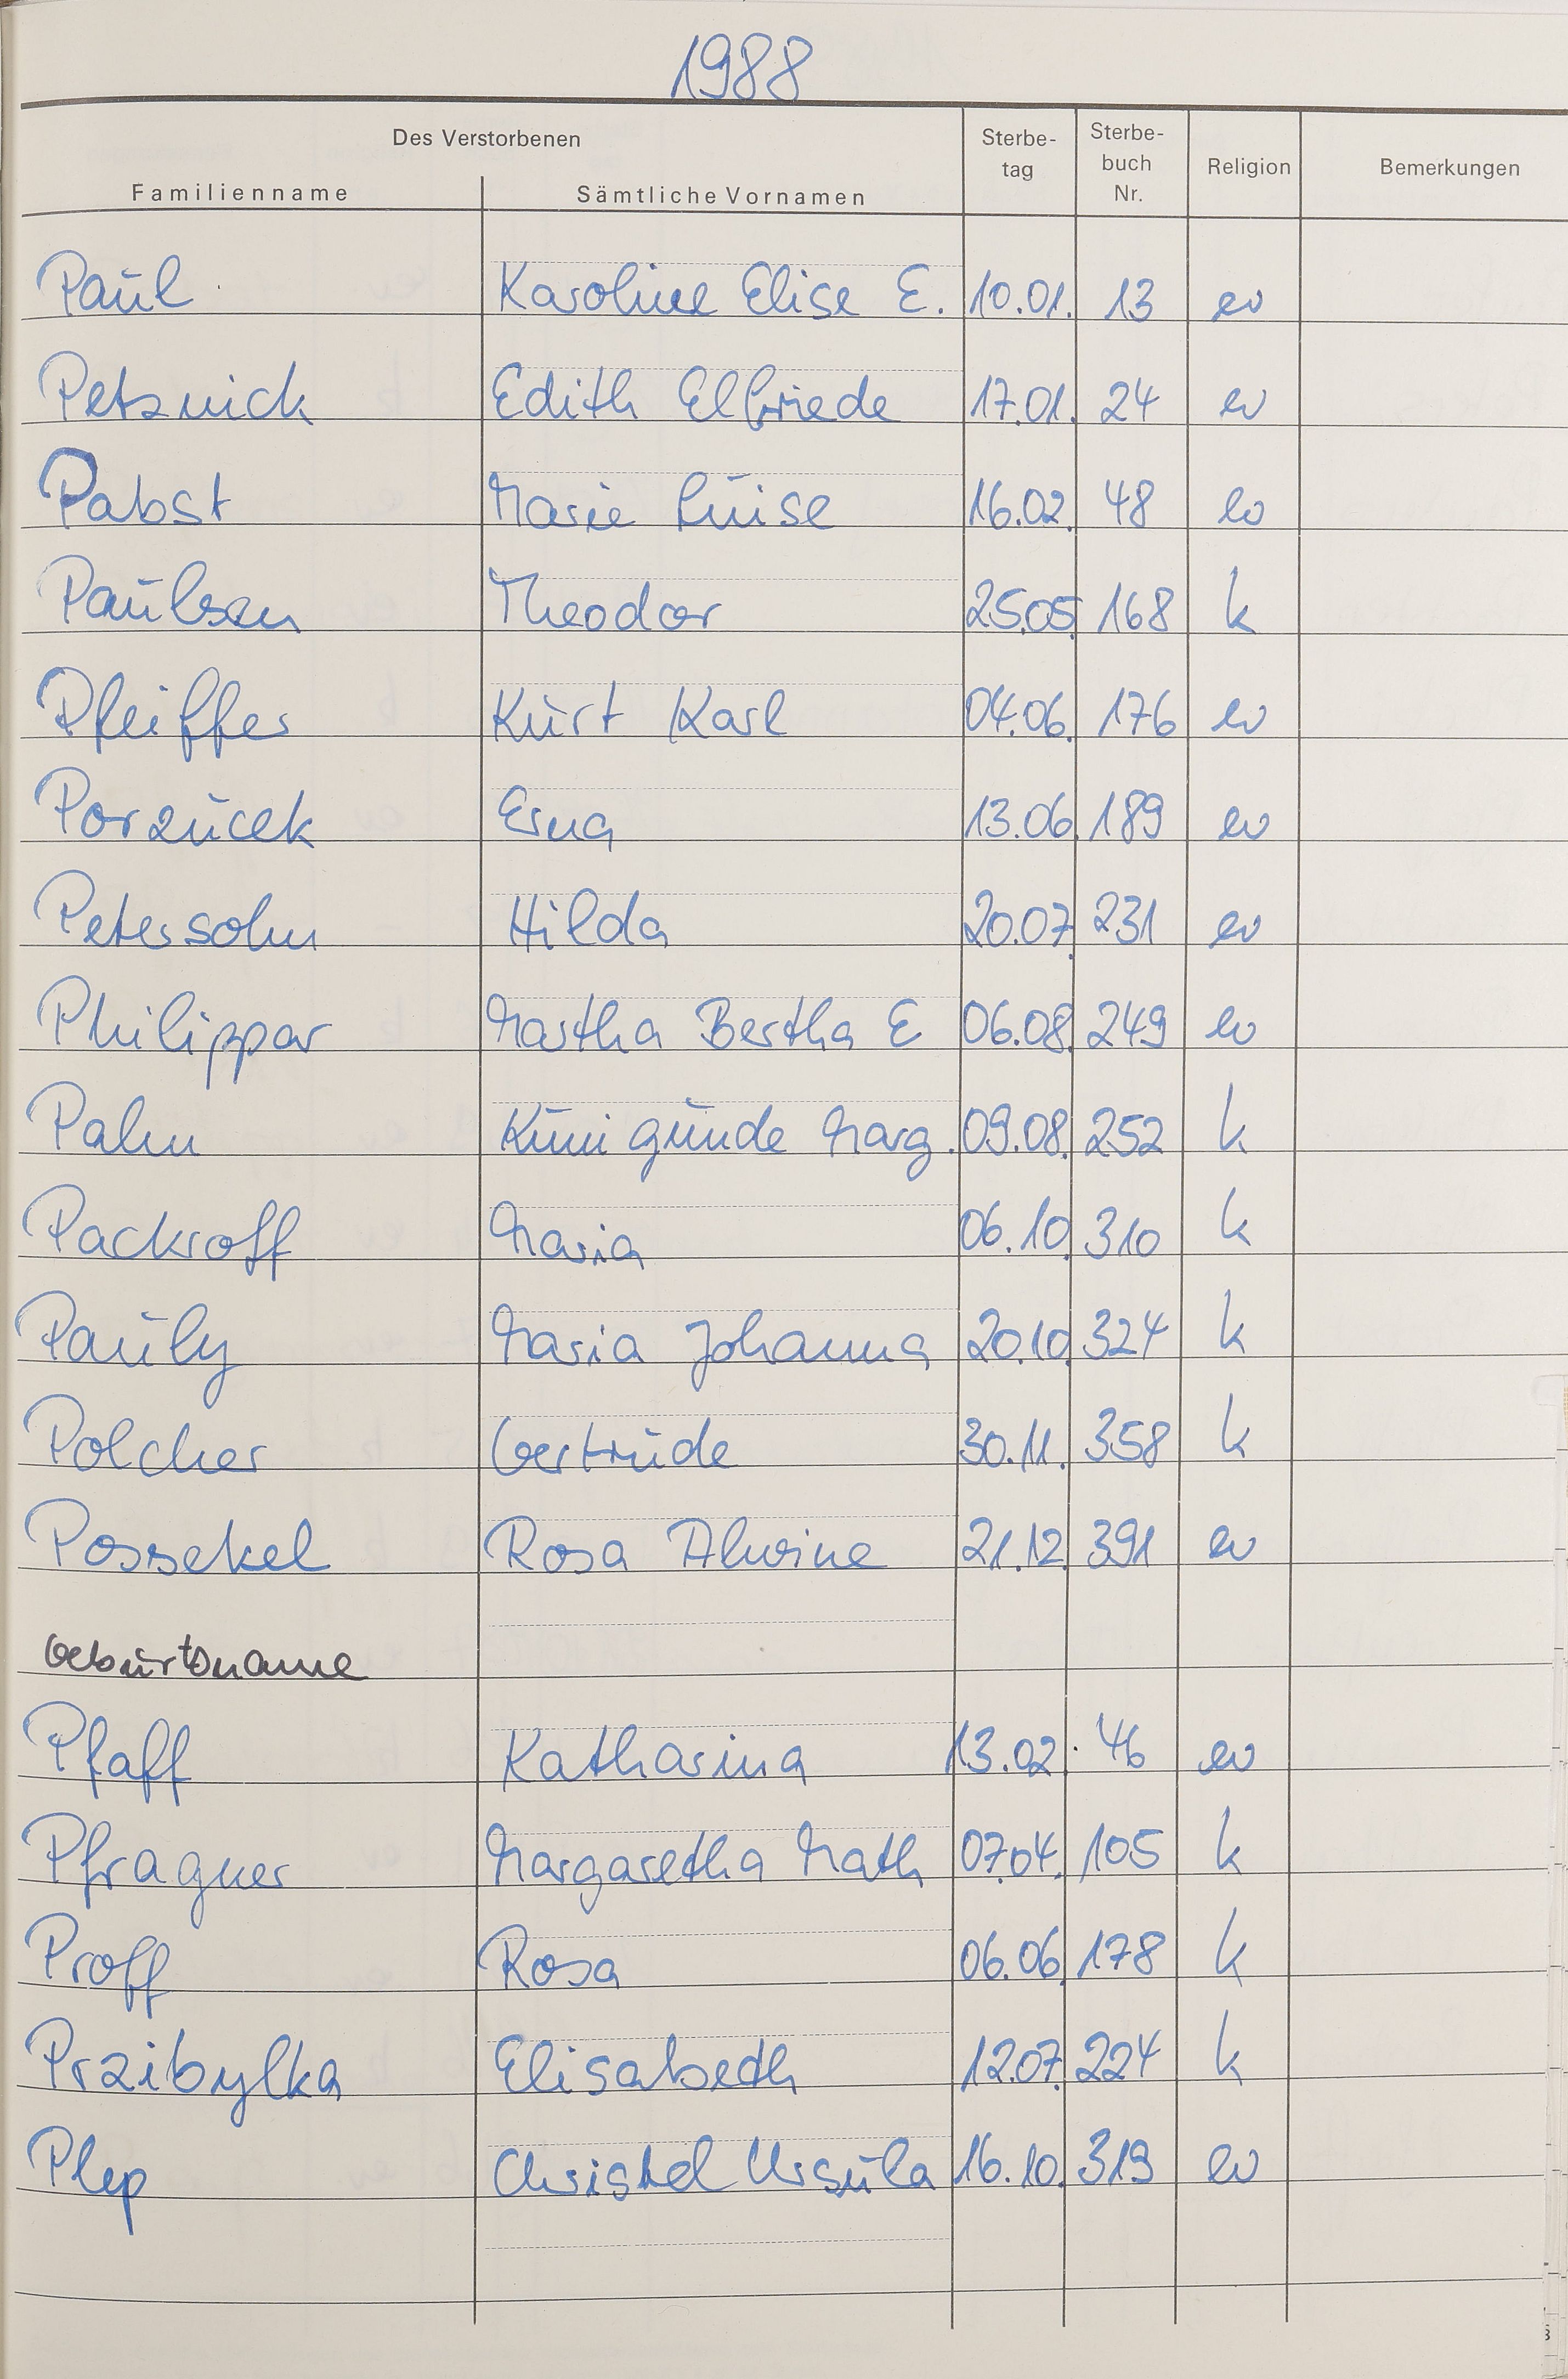 1988
Des Verstorbenen
Familienname Sämtliche Vornamen Sterbe-tag Sterbe-buch Nr. Religion Bemerkungen
Paul Karoline Elise E. 10.01. 13 ev
Petznick Edith Elfriede 17.01. 24 ev
Pabst Marie Luise 16.02. 48 ev
Paulsen Theodor 25.05. 168 k
Pfeiffer Kurt Karl 04.06. 176 ev
Porzucek Erna 13.06. 189 ev
Petersohn Hilda 20.07. 231 ev
Philippar Martha Bertha E 06.08. 249 ev
Palm Kunigunde Marg. 09.08. 252 k
Packroff Maria 06.10. 310 k
Pauly Maria Johanna 20.10. 324 k
Polcher Gertrude 30.11. 358 k
Possekel Rosa Alwine 21.12. 391 ev
Geburtsname
Pfaff Katharina 13.02. 46 ev
Pfragner Margaretha Math 07.04. 105 k
Proff Rosa 06.06. 178 k
Przibylka Elisabeth 12.07. 224 k
Plep Christel Ursula 16.10. 319 ev